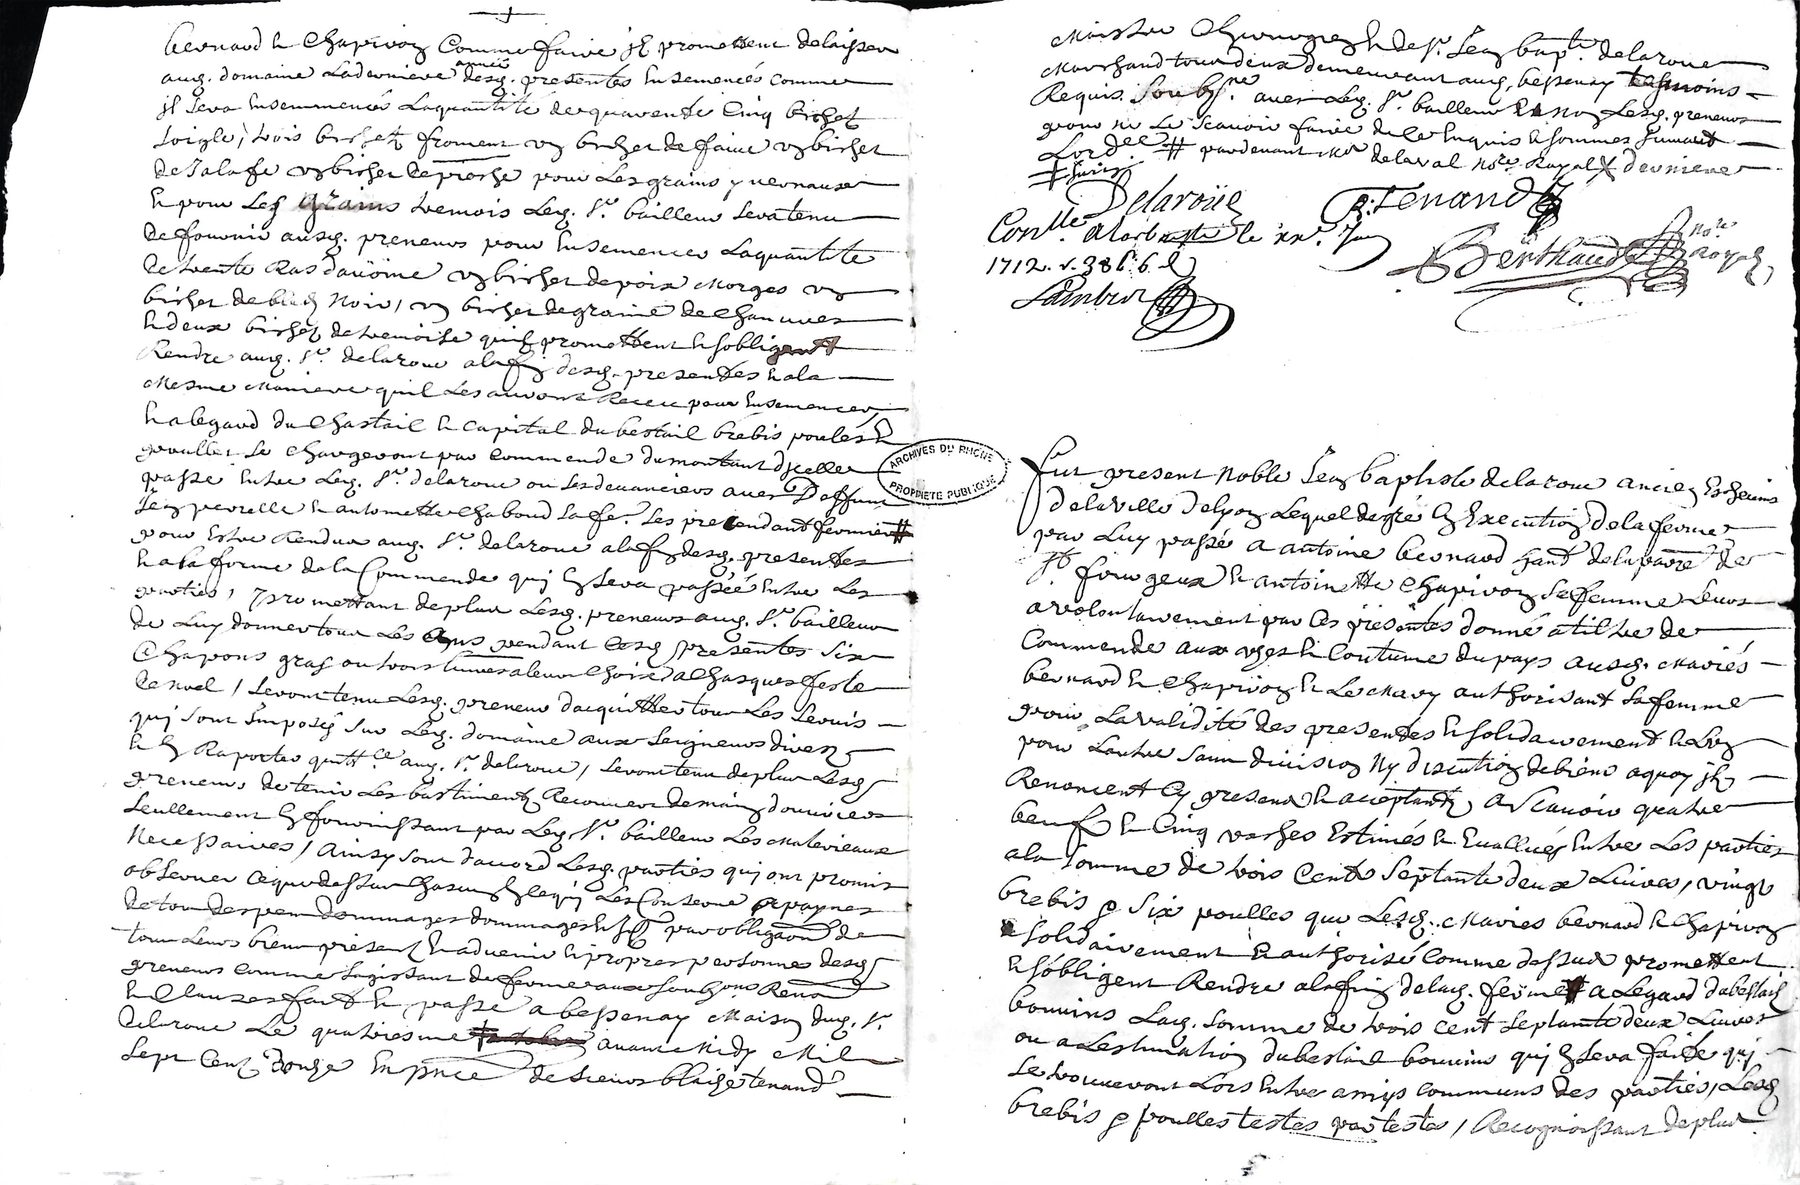 bernard & Chapiron Comme faire jl promettent delaisser
aud. domaine Laderniere année desd. presentes Ensemencés comme
jl sera Ensemmencé Laquantité dequarente Cinq bichet
soigle, trois bichet froment un bichet de faive un bichet
de un bichet pour Les grains y
& pour Les grains tremois Led. Sr. bailleur sera tenu
de fournir ausd. preneurs pour Ensemencer Laquantité
de trente Ras davoine un bichet depoix Morges un
bichet de bled Noir, un bichet degraine de Chanvres
& deux bichet de tremoise quils promettent & sobligent
Rendre aud. Sr. delaroue alafin desd. presentes & ala
Mesme Maniere quil Les auront Receu pour Ensemencer,
& alegard du Chastail & capital du bestail brebis poules &
poullet se chargeront par Commende dumontant dicelle
passé Entre Led. Sr. delaroue ou ses devanciers avec Deffunt
Jean & antoinette Chaboud safe. Les precendant fermier #
pour Estre Rendue aud. Sr. delaroue alafin desd. presentes
& ala forme dela Commende quj En sera passéé Entre Les
parties, promettant deplus Lesd. preneurs aud. Sr. bailleur
de Luy donner tous Les Ans pendant Cesd presentes Six
Chapons gras ou trois livres aleur Choix a Chasques feste
de noel, seront tenu Lesd. preneur dacquitter tous Les servis
quj sont Imposés sur Led. domaine aux Seigneurs divers
& En Raporter quittce aud. Sr. delaroue, seront tenu deplus Lesd
preneurs de tenir Les bastiments Recouvert demain douvriers
seullement En fournissant par Led. Sr. bailleur Les Materieaux
Necessaires, Ainsy sont daccord Lesd. parties quj ont promis
observer Ceque dessus Chascun En Cequj Les Conserne apaynes
de tous despens dommages & par obligaon de
tous Leurs biens présent & advenir & propres personnes desd
preneurs Comme sagissant de ferme aux soubons Renon
& Clauses fait & passé a bessenay Maison dud. Sr.
delaroue Le quatriesme avant Midy Mil
sept Cent douze En pnce de sieurs blaise tenand
Maistre Chirurgien & de Sr. Jean bapt. delaroue
Marchand tous deux demeurant aud. bessenay tesmoins
Requis. Soubsné. avec Led. Sr. bailleur & Non Lesd. preneurs
pour ne Le Scavoir faire de ce Enquis & sommes suivant
Lordce # pardevant Me delaval Nore Royal X derniere
Delaroüe
B: Tenand
Conlle. Alarbresle le xxe. Juin
1712. r. 38 s 6 d
Berthaud nore Royal
Lambert
ARCHIVES DU RHÔNE
PROPRIÉTÉ PUBLIQUE
fut present Noble Jean baptiste delaroue ancien Eschevins
delaville delyon Lequel degré En Execution delaferme
par Luy passé a antoine bernard gant. delaparre de
St. forgeux & antoinette Chapiron sa femme Leurs
a volontairement par Ces présentes donné atiltre de
Commende aux us & Coutume dupays ausd. Mariés
bernard & Chapiron & Le Mary authorisant safemme
pour La validité des presentes & solidairement & Lun
pour Lautre sans division Ny discution debiens aquoy jls
Renoncent Cy present & acceptants, A Scavoir quatre
beufs & Cinq vaches Estimés & Evallués Entre Les parties
ala Somme de trois Cents septante deux Livres, vingt
brebis & Six poulles que Lesd. Mariés bernard & Chapiron
solidairement & authorisé Comme dessus promettent
& sobligent Rendre alafin delad. ferme alegard dubestail
bovins Lad. somme de trois cent septante deux Livres
ou a Lestimation dubestail bovins quj En sera faite quj
se trouveront Lors Entre amys Communs des parties, Lesd
brebis & poulles testes par testes, Recognoissant deplus